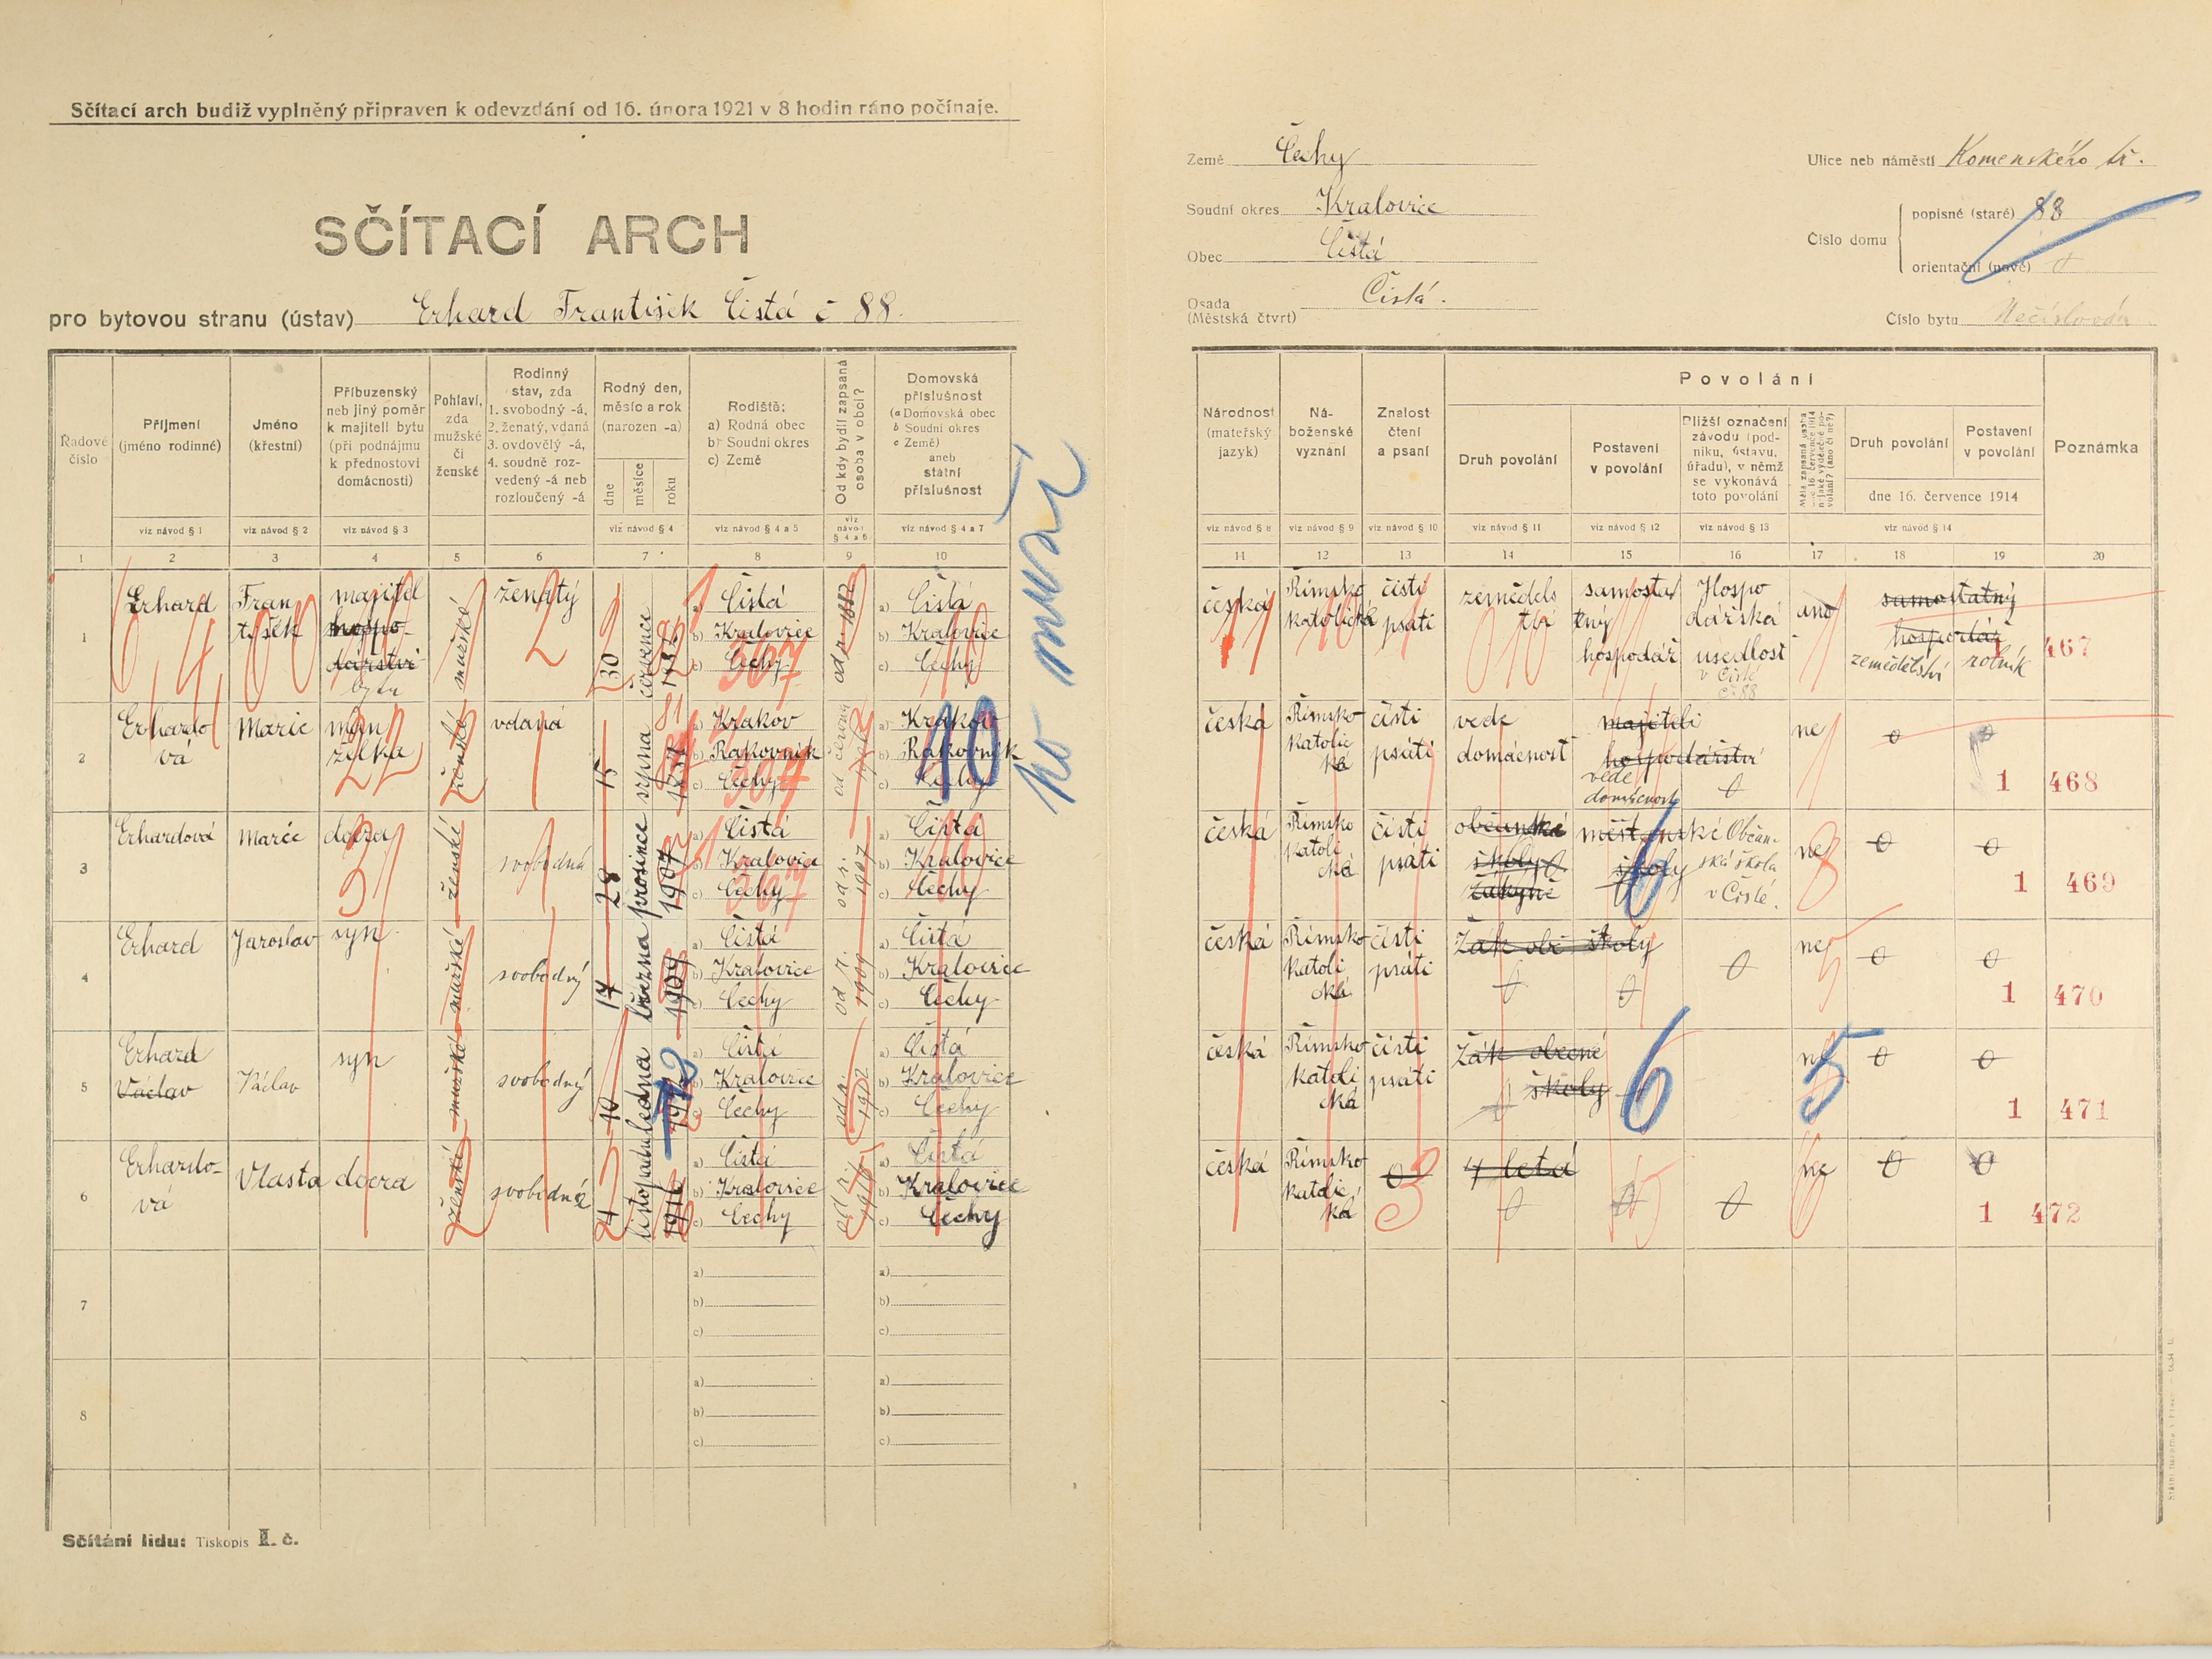 Sčítací arch budiž vyplněný připraven k odevzdání od 16. února 1921 v 8 hodin ráno počínaje.
SČÍTACÍ ARCH
pro bytovou stranu (ústav) Erhard František Čistá č 88.
Země Čechy
Soudní okres Kralovice
Obec Čistá
Osada Čistá.
(Městská čtvrť)
Ulice neb náměstí Komenského tř.
Číslo domu
popisné (staré) 88
orientační (nové) 0
Číslo bytu Nečíslován
Řadové číslo
Příjmení (jméno rodinné)
Jméno (křestní)
Příbuzenský neb jiný poměr k majiteli bytu (při podnájmu k přednostovi domácnosti)
Pohlaví, zda mužské či ženské
Rodinný stav, zda 1. svobodný -á, 2. ženatý, vdaná 3. ovdovělý -á, 4. soudně rozvedený -á neb rozloučený -á
Rodný den, měsíc a rok (narozen -a)
dne měsíce roku
Rodiště:
a) Rodná obec
b) Soudní okres
c) Země
Od kdy bydlí zapsaná osoba v obci?
Domovská příslušnost
(a Domovská obec
b Soudní okres
c Země)
aneb
státní příslušnost
viz návod § 1 viz návod § 2 viz návod § 3 viz návod § 4 viz návod § 4 a 5 viz návod § 4 a 6 viz návod § 4 a 7
1 2 3 4 5 6 7 8 9 10
1 Erhard František majitel hospodářství bytu mužské ženatý 30 července
a) Čistá
b) Kralovice
c) Čechy
a) Čistá
b) Kralovice
c) Čechy
2 Erhardová Marie manželka ženské vdaná 15 srpna
a) Krakov
b) Rakovník
c) Čechy
a) Krakov
b) Rakovník
c) Čechy
3 Erhardová Marie dcera ženské svobodná 28 prosince 1907
a) Čistá
b) Kralovice
c) Čechy
od r. 1907
a) Čistá
b) Kralovice
c) Čechy
4 Erhard Jaroslav syn mužské svobodný 17 března 1909
a) Čistá
b) Kralovice
c) Čechy
od r. 1909
a) Čistá
b) Kralovice
c) Čechy
5 Erhard Václav Václav syn mužské svobodný 10 ledna
a) Čistá
b) Kralovice
c) Čechy
od r. 1912
a) Čistá
b) Kralovice
c) Čechy
6 Erhardová Vlasta dcera ženské svobodná 4 listopadu 1916
a) Čistá
b) Kralovice
c) Čechy
od r. 1916
a) Čistá
b) Kralovice
c) Čechy
7
a)
b)
c)
a)
b)
c)
8
a)
b)
c)
a)
b)
c)
10
Sčítání lidu: Tiskopis II. č.
Národnost (mateřský jazyk)
Náboženské vyznání
Znalost čtení a psaní
Povolání
Druh povolání
Postavení v povolání
Bližší označení závodu (podniku, ústavu, úřadu), v němž se vykonává toto povolání
Druh povolání
Postavení v povolání
dne 16. července 1914
Poznámka
viz návod § 8 viz návod § 9 viz návod § 10 viz návod § 11 viz návod § 12 viz návod § 13 viz návod § 14
11 12 13 14 15 16 17 18 19 20
česká Římsko katolická čísti psáti zemědělství samostatný hospodář Hospodářská usedlost v Čisté č 88 ano samostatný hospodář zemědělství rolník 467
česká Římsko katolická čísti psáti vede domácnost majiteli hospodářství vede domácnost 0 ne 0 0 1 468
česká Římsko katolická čísti psáti občanské školy žákyně měšťanské školy Občanská škola v Čisté. ne 0 0 1 469
česká Římsko katolická čísti psáti Žák ob. školy 0 0 0 ne 0 0 1 470
česká Římsko katolická čísti psáti Žák obecné školy 0 6 ne 5 0 0 1 471
česká Římsko katolická 0 4 letá 0 0 0 ne 0 0 1 472